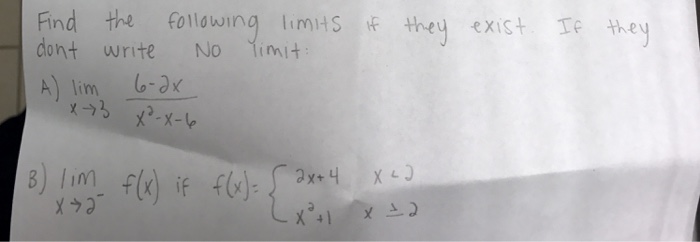 Find the following limits if they exist. If they
dont write No limit:
A) lim 6-2x
x→3 x²-x-6
B) lim f(x) if f(x)= { 2x+4 x<2
x→2⁻ x²+1 x ≥ 2